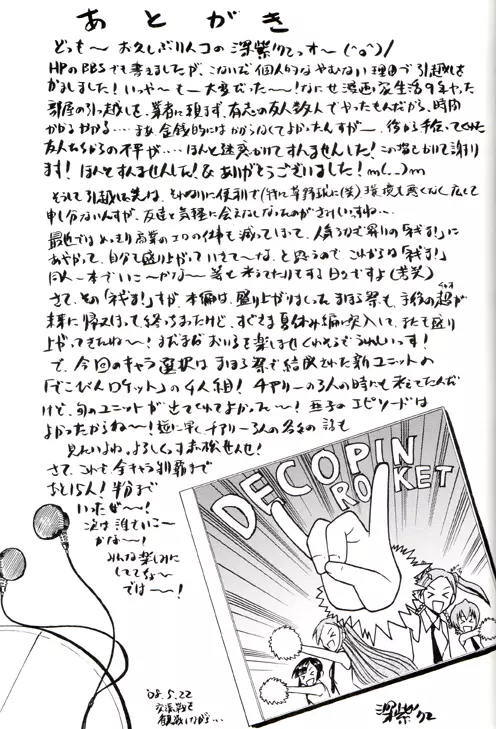 あとがき
どっも〜お久しぶりんコの深紫クにっす〜(^o^)/
HPのBBSでも書きましたが、こないだ個人的なやむない理由で引越しを
かましました！いっや〜も〜大変だった〜！なにせ漫画家生活9年やった
部屋の引っ越しを、業者に頼まず、有志の友人数人でやったもんだから、時間
かかるかかる…まぁ金銭的にはかからなくてよかったんすが〜後から手伝ってくれた
友人たちからの不平が…ほんと迷惑かけてすんませんした！この場でかりて謝り
ます！ほんとすんませんした！&ありがとうございました！m(__)m
そうして引越した先は、それなりに便利で(特に草野球に(笑)環境も悪くなく広くて
申し分ないんすが、友達と気軽に会えなくなったのがさみしいすね…
最近ではめっきり商業のエロの仕事も減ってしまって、人気うなぎ昇りの「ネギま！」に
あやかって、自分も盛り上がっていきて〜な、と思うので、これからは「ネギま！」
同人一本でいこ〜かな〜等と考えてたりもする日々ですよ(苦笑)
さて、その「ネギま！」すが、本編は盛り上がりまくったまほら祭も、子孫の超が
未来に帰えてしまって終っちまったけど、すぐさま夏休み編に突入して、またも盛り
上がってきたね〜！まだまだおいらを楽しませてくれそうでうれしいっす！
で、今回のキャラ選択は、まほら祭で結成された新ユニットの
「でこぴんロケット」の4人組！チアリーの3人の時にも考えてたんだ
けど、旬のユニットが出てきてくれてよかって〜！亜子のエピソードは
よかったからね〜！逆に早くチアリー3人の各々の話も
見たいよね、よろしくっす赤松せんせ！
さて、これも全キャラ制覇まで
あと15人！半分まで
いったぜ〜！
次は誰でいこ〜
かな〜！
みんな楽しみに
しててな〜
では〜！
DECOPIN
ROCKET
'08.5.22
交流戦を
観戦しながら…
深紫クニ